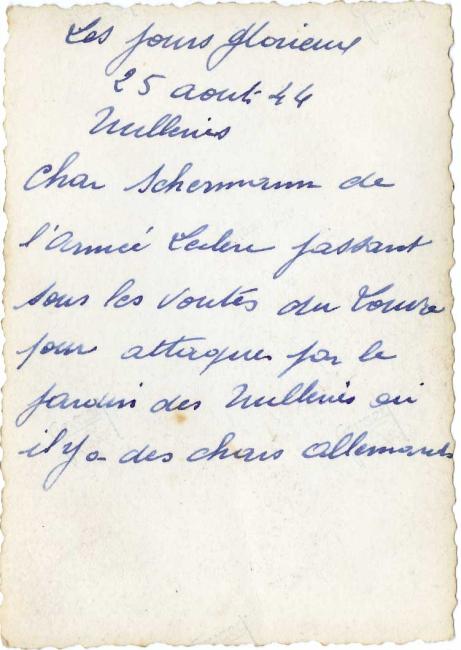 Les jours glorieux
25 aout 44
Tuilleries
Char Schermann de
l'Armée Leclerc passant
sous les voutes du Louvre
pour attaquer par le
jardin des Tuilleries où
il y a des chars allemands